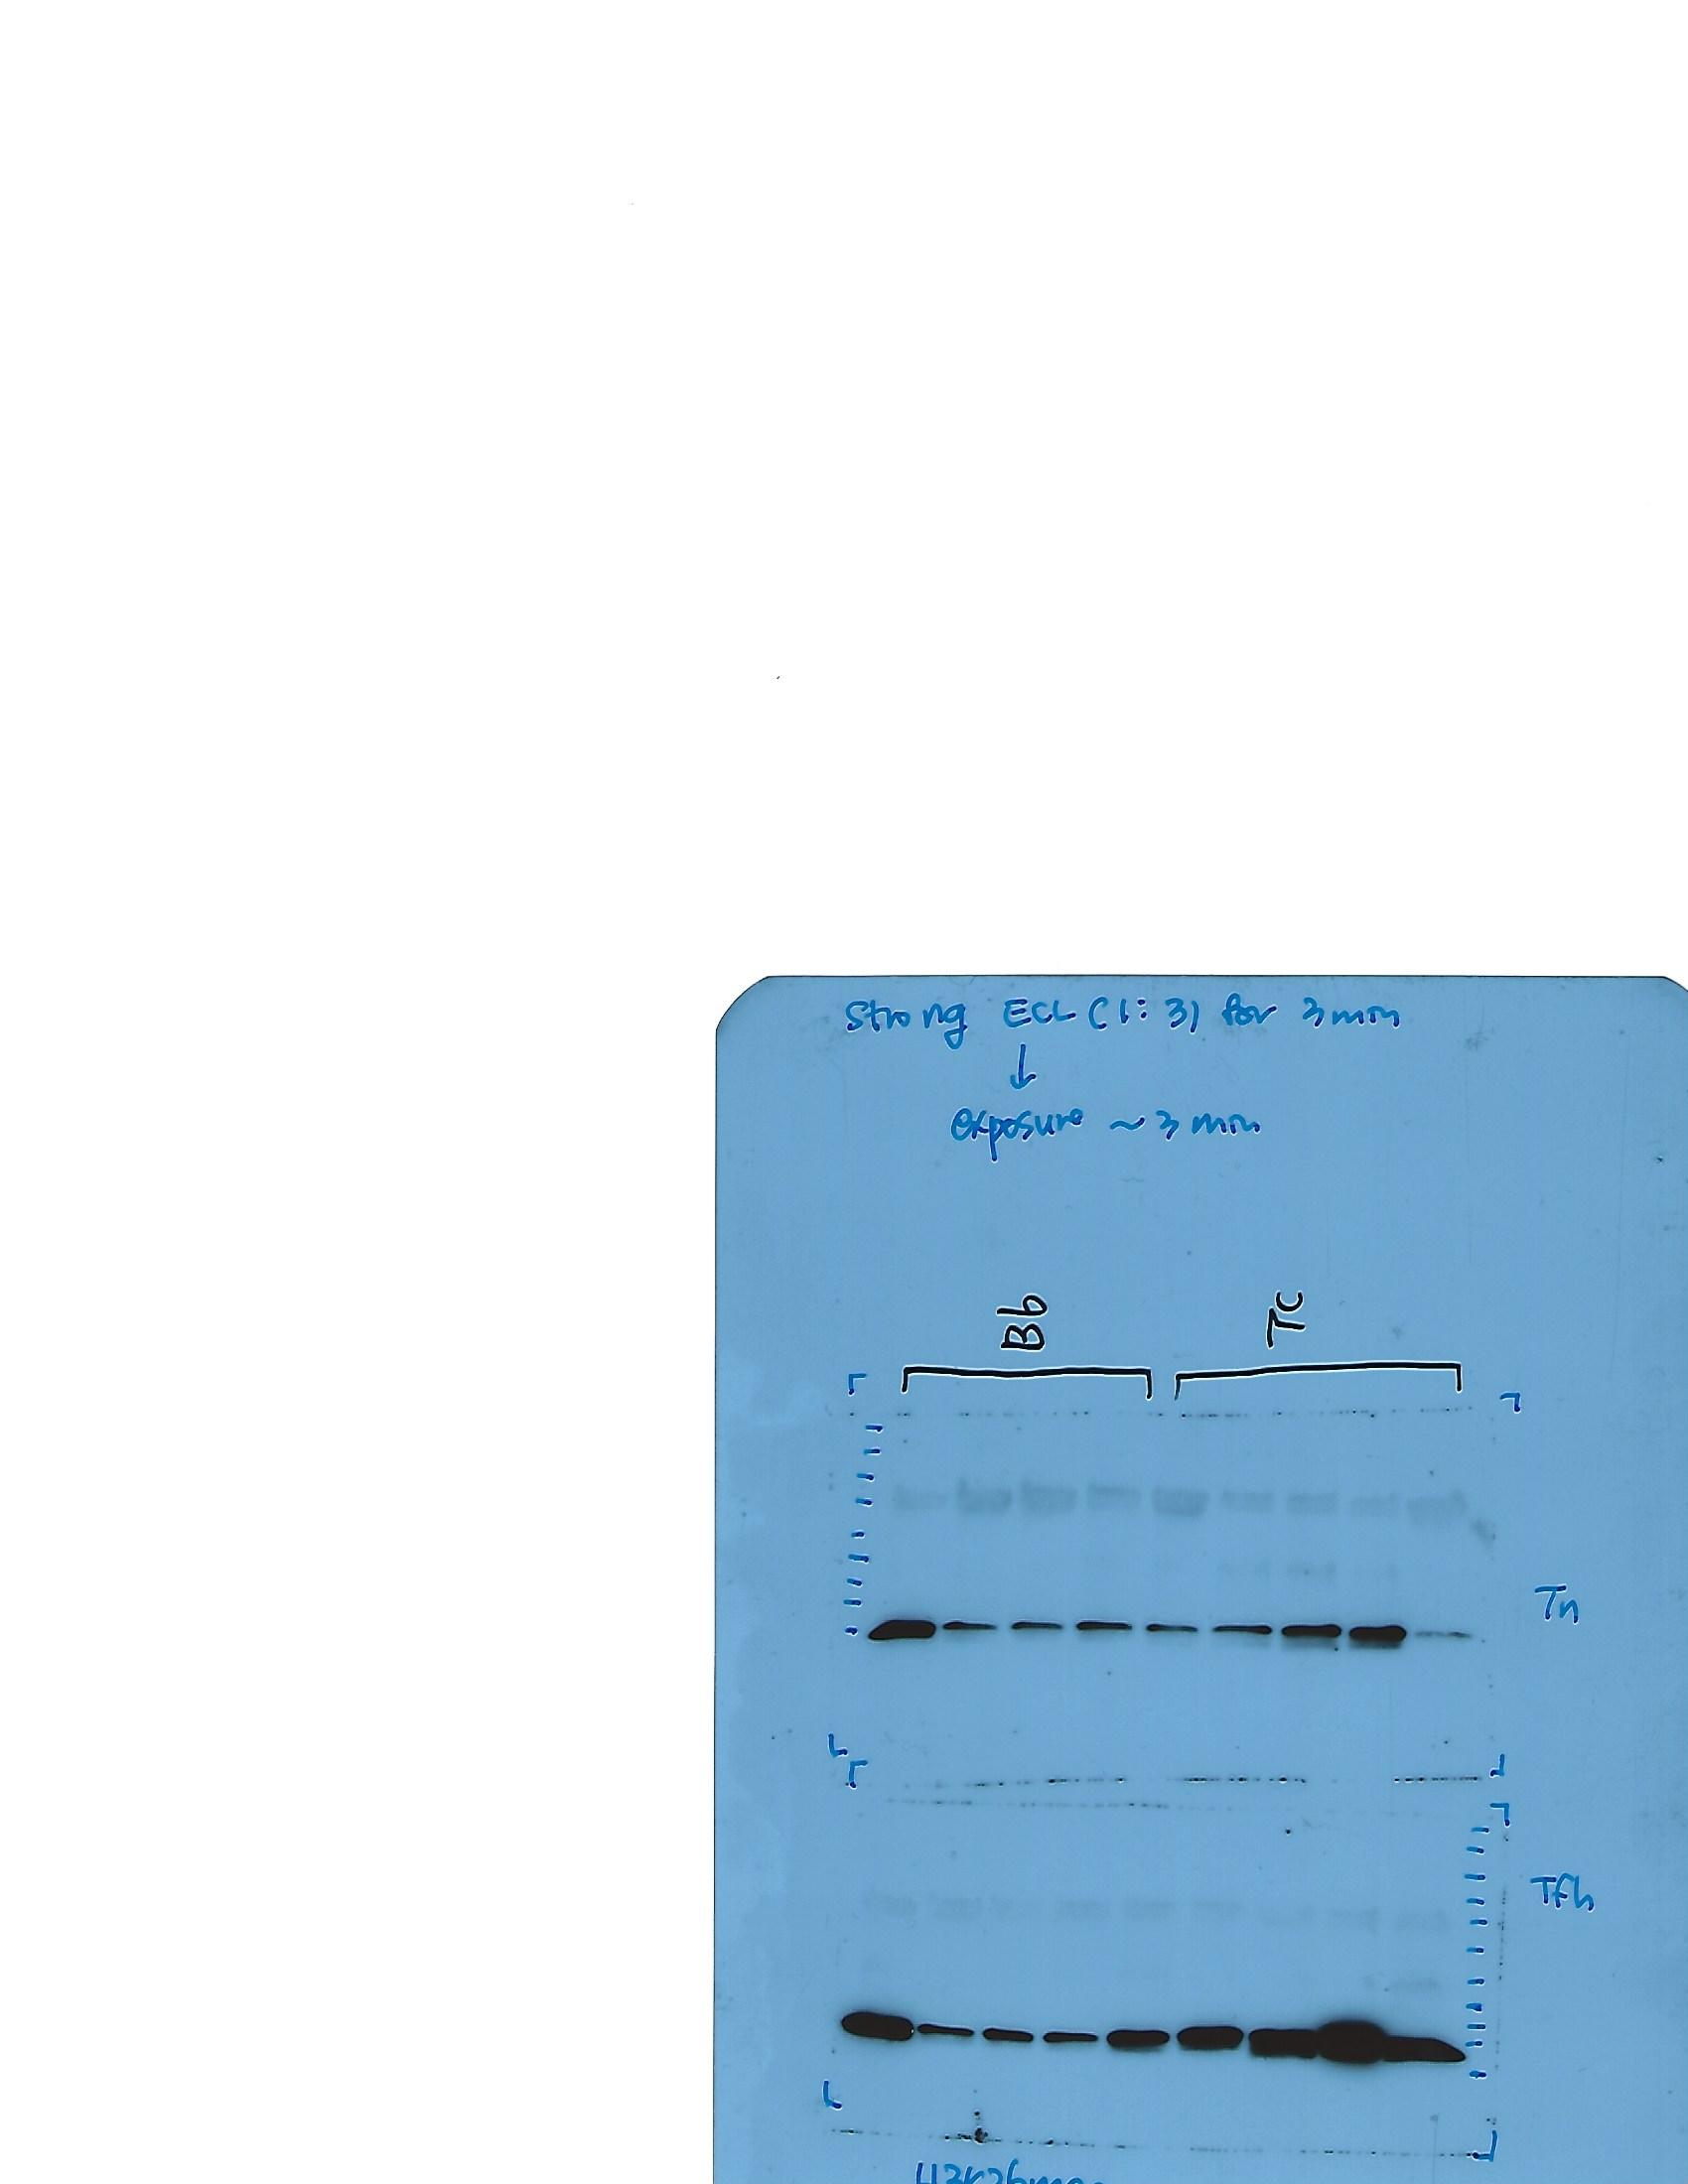 Strong ECL (1:3) for 3 min
↓
exposure ~3 min
Bb
Tc
Tn
Tfh